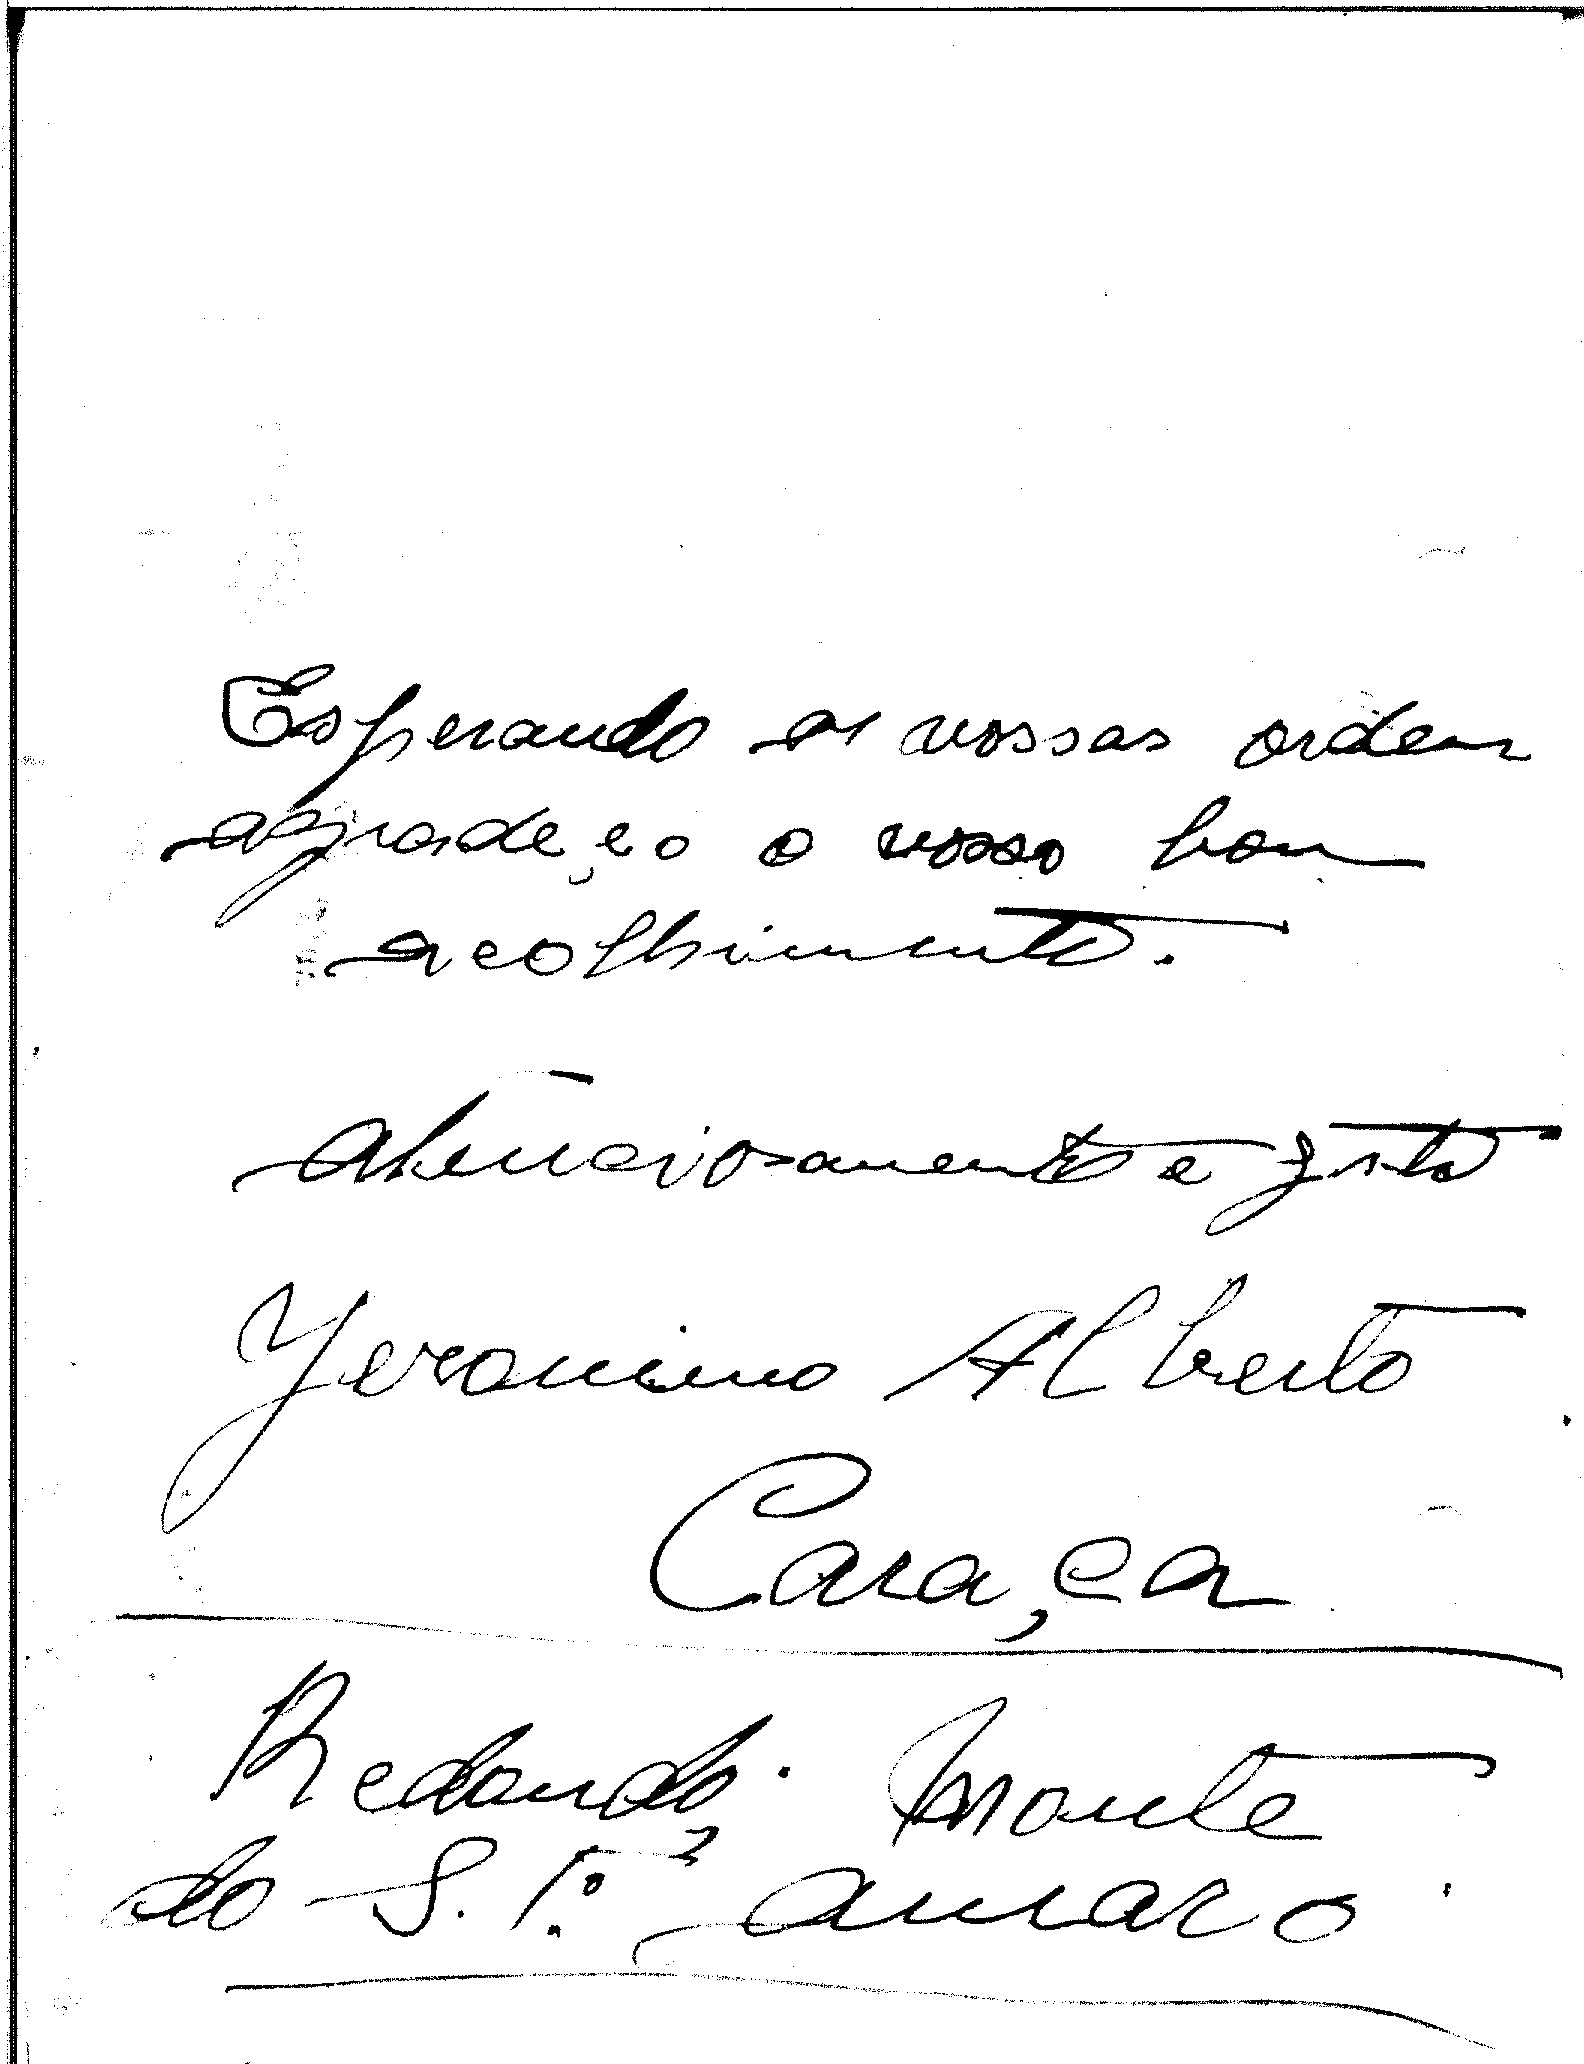 Esperando as vossas ordem
agradeço o vosso bom
acolhimento.
atenciosamente e grato
Yeronimo Alberto
Caraça
Redondo. Monte
do S. T.º Amaro.